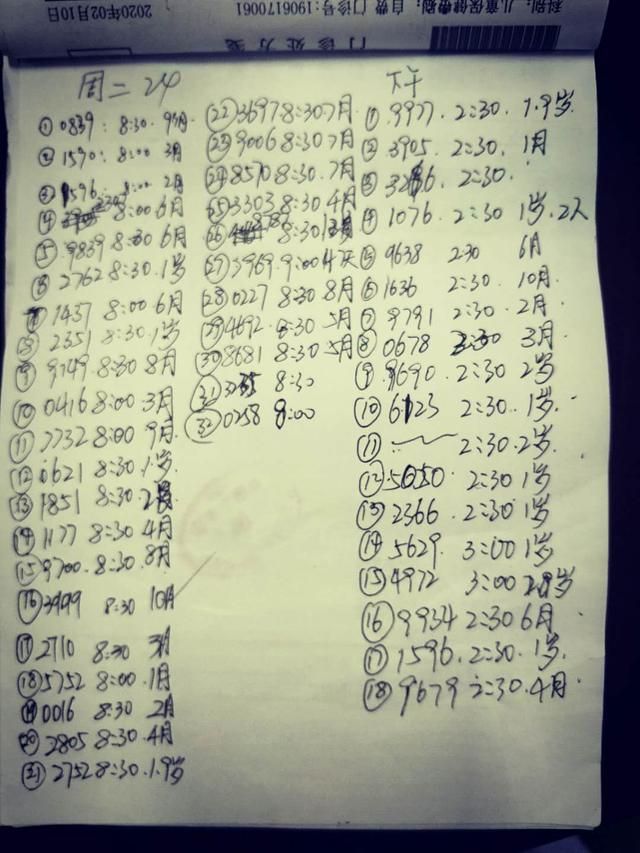 科别: 儿童保健费别: 自费 门诊号: 1906170061
2020年02月10日
门诊处方笺
周二 24
① 0839: 8:30. 9月
② 1590: 8:00 3月
③ 1596: 8:00 2月
④ 8:00 6月
⑤ 9839 8:30 6月
⑥ 2762 8:30. 1岁
⑦ 1437 8:00 6月
⑧ 2351 8:30. 1岁
⑨ 9749 8:30 8月
⑩ 0416 8:00. 3月
⑪ 2732 8:00 9月
⑫ 0621 8:30. 1岁.
⑬ 1851 8:30. 2月
⑭ 1177 8:30 4月
⑮ 9700. 8:30. 8月
⑯ 3999 8:30 10月
⑰ 2710 8:30 3月
⑱ 5752 8:00. 1月
⑲ 0016 8:30 2月
⑳ 2805 8:30. 4月
㉑ 2752 8:30. 1.9岁
㉒ 3697 8:30 7月
㉓ 9006 8:30 7月
㉔ 8570 8:30. 7月
㉕ 3303 8:30 4月
㉖ 8:30
㉗ 3969. 9:00 4天
㉘ 0227 8:30 8月
㉙ 4692 8:30 5月
㉚ 8681 8:30 5月
㉛ 8:30
㉜ 0258 8:00
下午
① 9977. 2:30. 1.9岁
② 3905. 2:30. 1月
③ 3286. 2:30.
④ 1076. 2:30 1岁. 2人
⑤ 9638 2:30 6月
⑥ 1636 2:30. 10月.
⑦ 9791 2:30. 2月.
⑧ 0678 2:30 3月.
⑨ 9690. 2:30. 2岁
⑩ 6123 2:30. 1岁.
⑪ 2:30. 2岁.
⑫ 5050. 2:30 1岁
⑬ 2366. 2:30 1岁
⑭ 5629. 3:00 1岁
⑮ 4972 3:00
⑯ 9934 2:30 6月
⑰ 1596. 2:30. 1岁.
⑱ 9679 2:30. 4月.